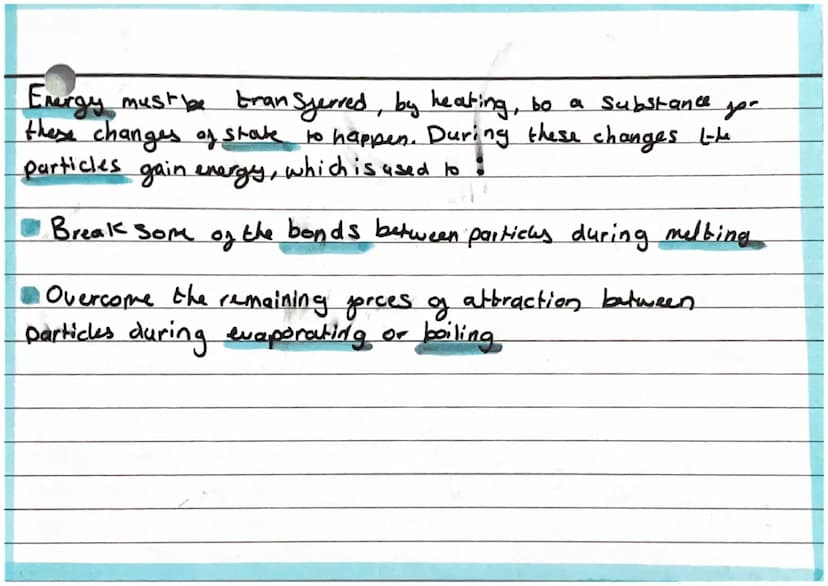 Energy must be transferred, by heating, to a substance for
these changes of state to happen. During these changes the
particles gain energy, which is used to :
Break some of the bonds between particles during melting
Overcome the remaining forces of attraction between
particles during evaporating or boiling